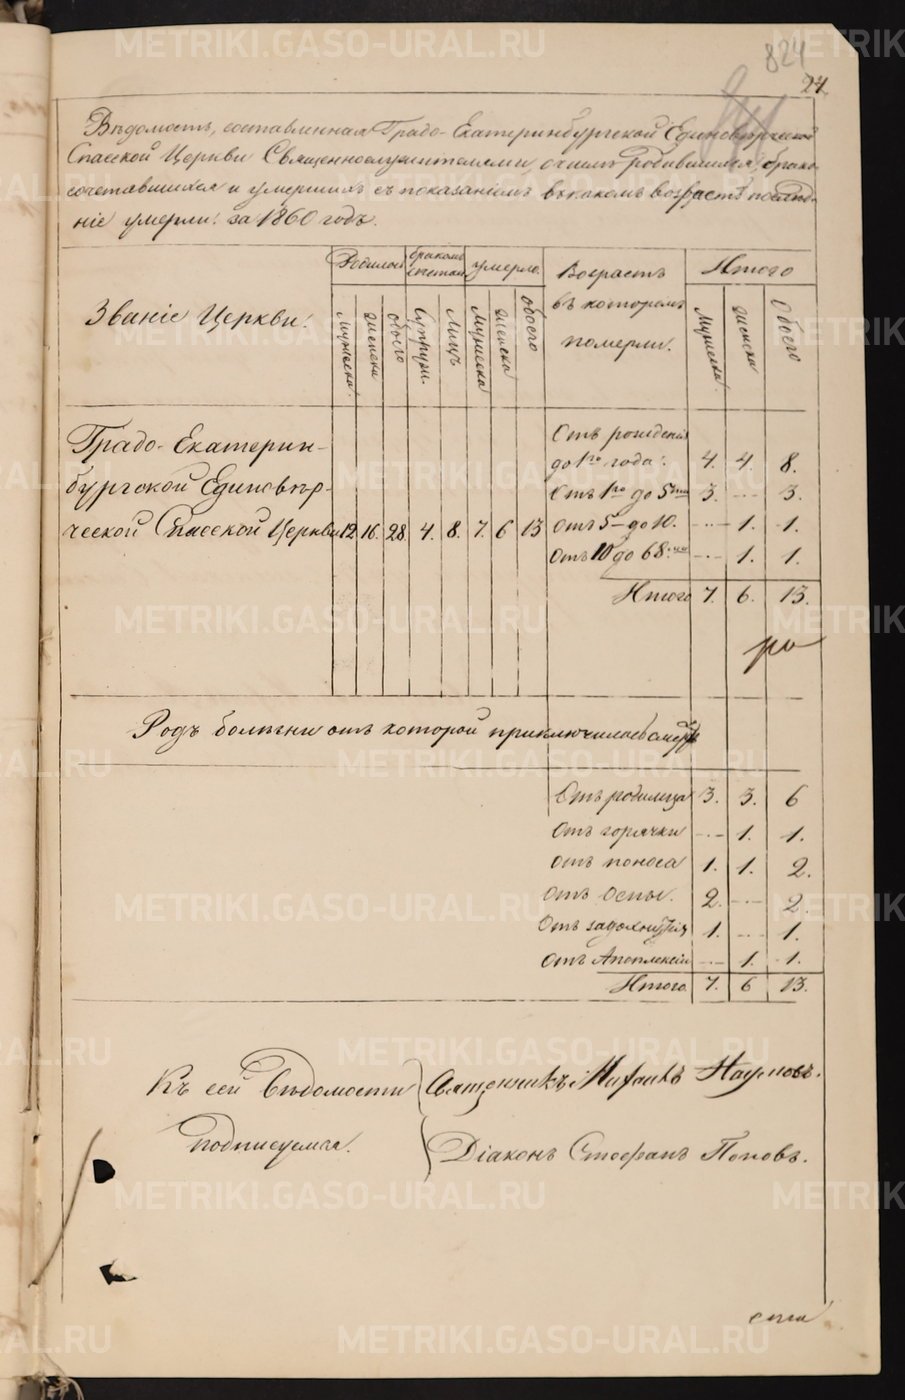 824
27
Вѣдомость, составленная Градо-Екатеринбургской Единовѣрческой
Спасской Церкви Священнослужителями, о числѣ родившихся, брако-
сочетавшихся и умершихъ съ показаніемъ въ какомъ возрастѣ послѣд-
ніе умерли: за 1860 годъ.
Званіе Церкви.
Родилось
бракомъ сочетан.
умерло.
Возрастъ въ которомъ померли.
Итого
Мужеска.
женска
обоего
Супруж.
Лицъ
Мужеска
женска
обоего
Мужеска.
женска
Обоего
Градо-Екатерин-
бургской Единовѣр-
ческой Спасской Церкви 12 16. 28 4. 8. 7. 6 13
Отъ рожденія
до 1го года. 4. 4. 8.
Отъ 1го до 5ти 3. -- 3.
Отъ 5- до 10. -- 1. 1.
Отъ 10 до 68. -- 1. 1.
Итого 7. 6. 13.
Родъ болѣзни отъ которой приключилась смерть
Отъ родимца 3. 3. 6
Отъ горячки -- 1. 1.
отъ поноса 1. 1. 2.
отъ Оспы. 2. -- 2.
Отъ 1. -- 1.
Отъ Апоплексіи -- 1. 1.
Итого 7. 6 13.
Къ сей Вѣдомости подписуемся.
Священникъ Михаилъ Наумовъ.
Діаконъ Стефанъ Поповъ.
METRIKI.GASO-URAL.RU